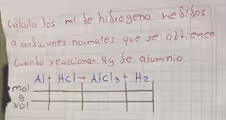 Calcula los ml de hidrogeno medidos
a condiciones normales que se obtienen
cuando reaccionan 4g de aluminio
Al + HCl → AlCl3 + H2
mol
g
vol